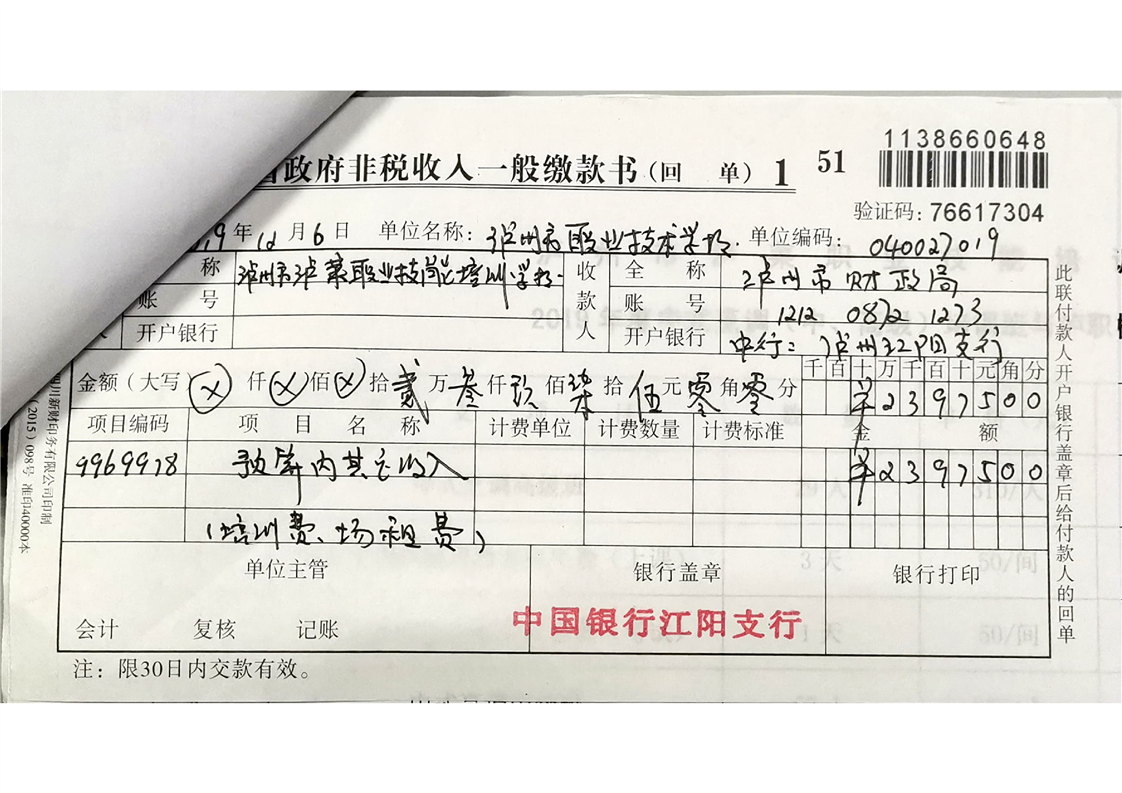 1138660648
政府非税收入一般缴款书(回 单) 1 51
验证码: 76617304
19年12月6日 单位名称: 泸州市职业技术学校 单位编码: 040027019
称 泸州市泸菜职业技能培训学校 收款人 全称 泸州市财政局
账号 账号 1212 0872 1273
开户银行 开户银行 中行: 泸州江阳支行
金额(大写) ⓧ 仟 ⓧ 佰 ⓧ 拾 贰 万 叁 仟 玖 佰 柒 拾 伍 元 零 角 零 分 千百十万千百十元角分 ¥2397500
项目编码 项目名称 计费单位 计费数量 计费标准 金额
9969978 预算内其它收入 ¥2397500
(培训费、场租费)
单位主管 银行盖章 银行打印
会计 复核 记账 中国银行江阳支行
注: 限30日内交款有效。
此联付款人开户银行盖章后给付款人的回单
川新财印务有限公司印制
(2015) 098号 准印40000本